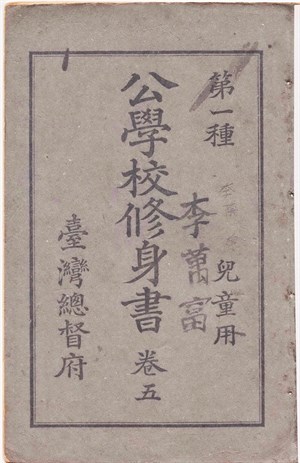 第一種 兒童用
李萬富
公學校修身書 卷五
臺灣總督府